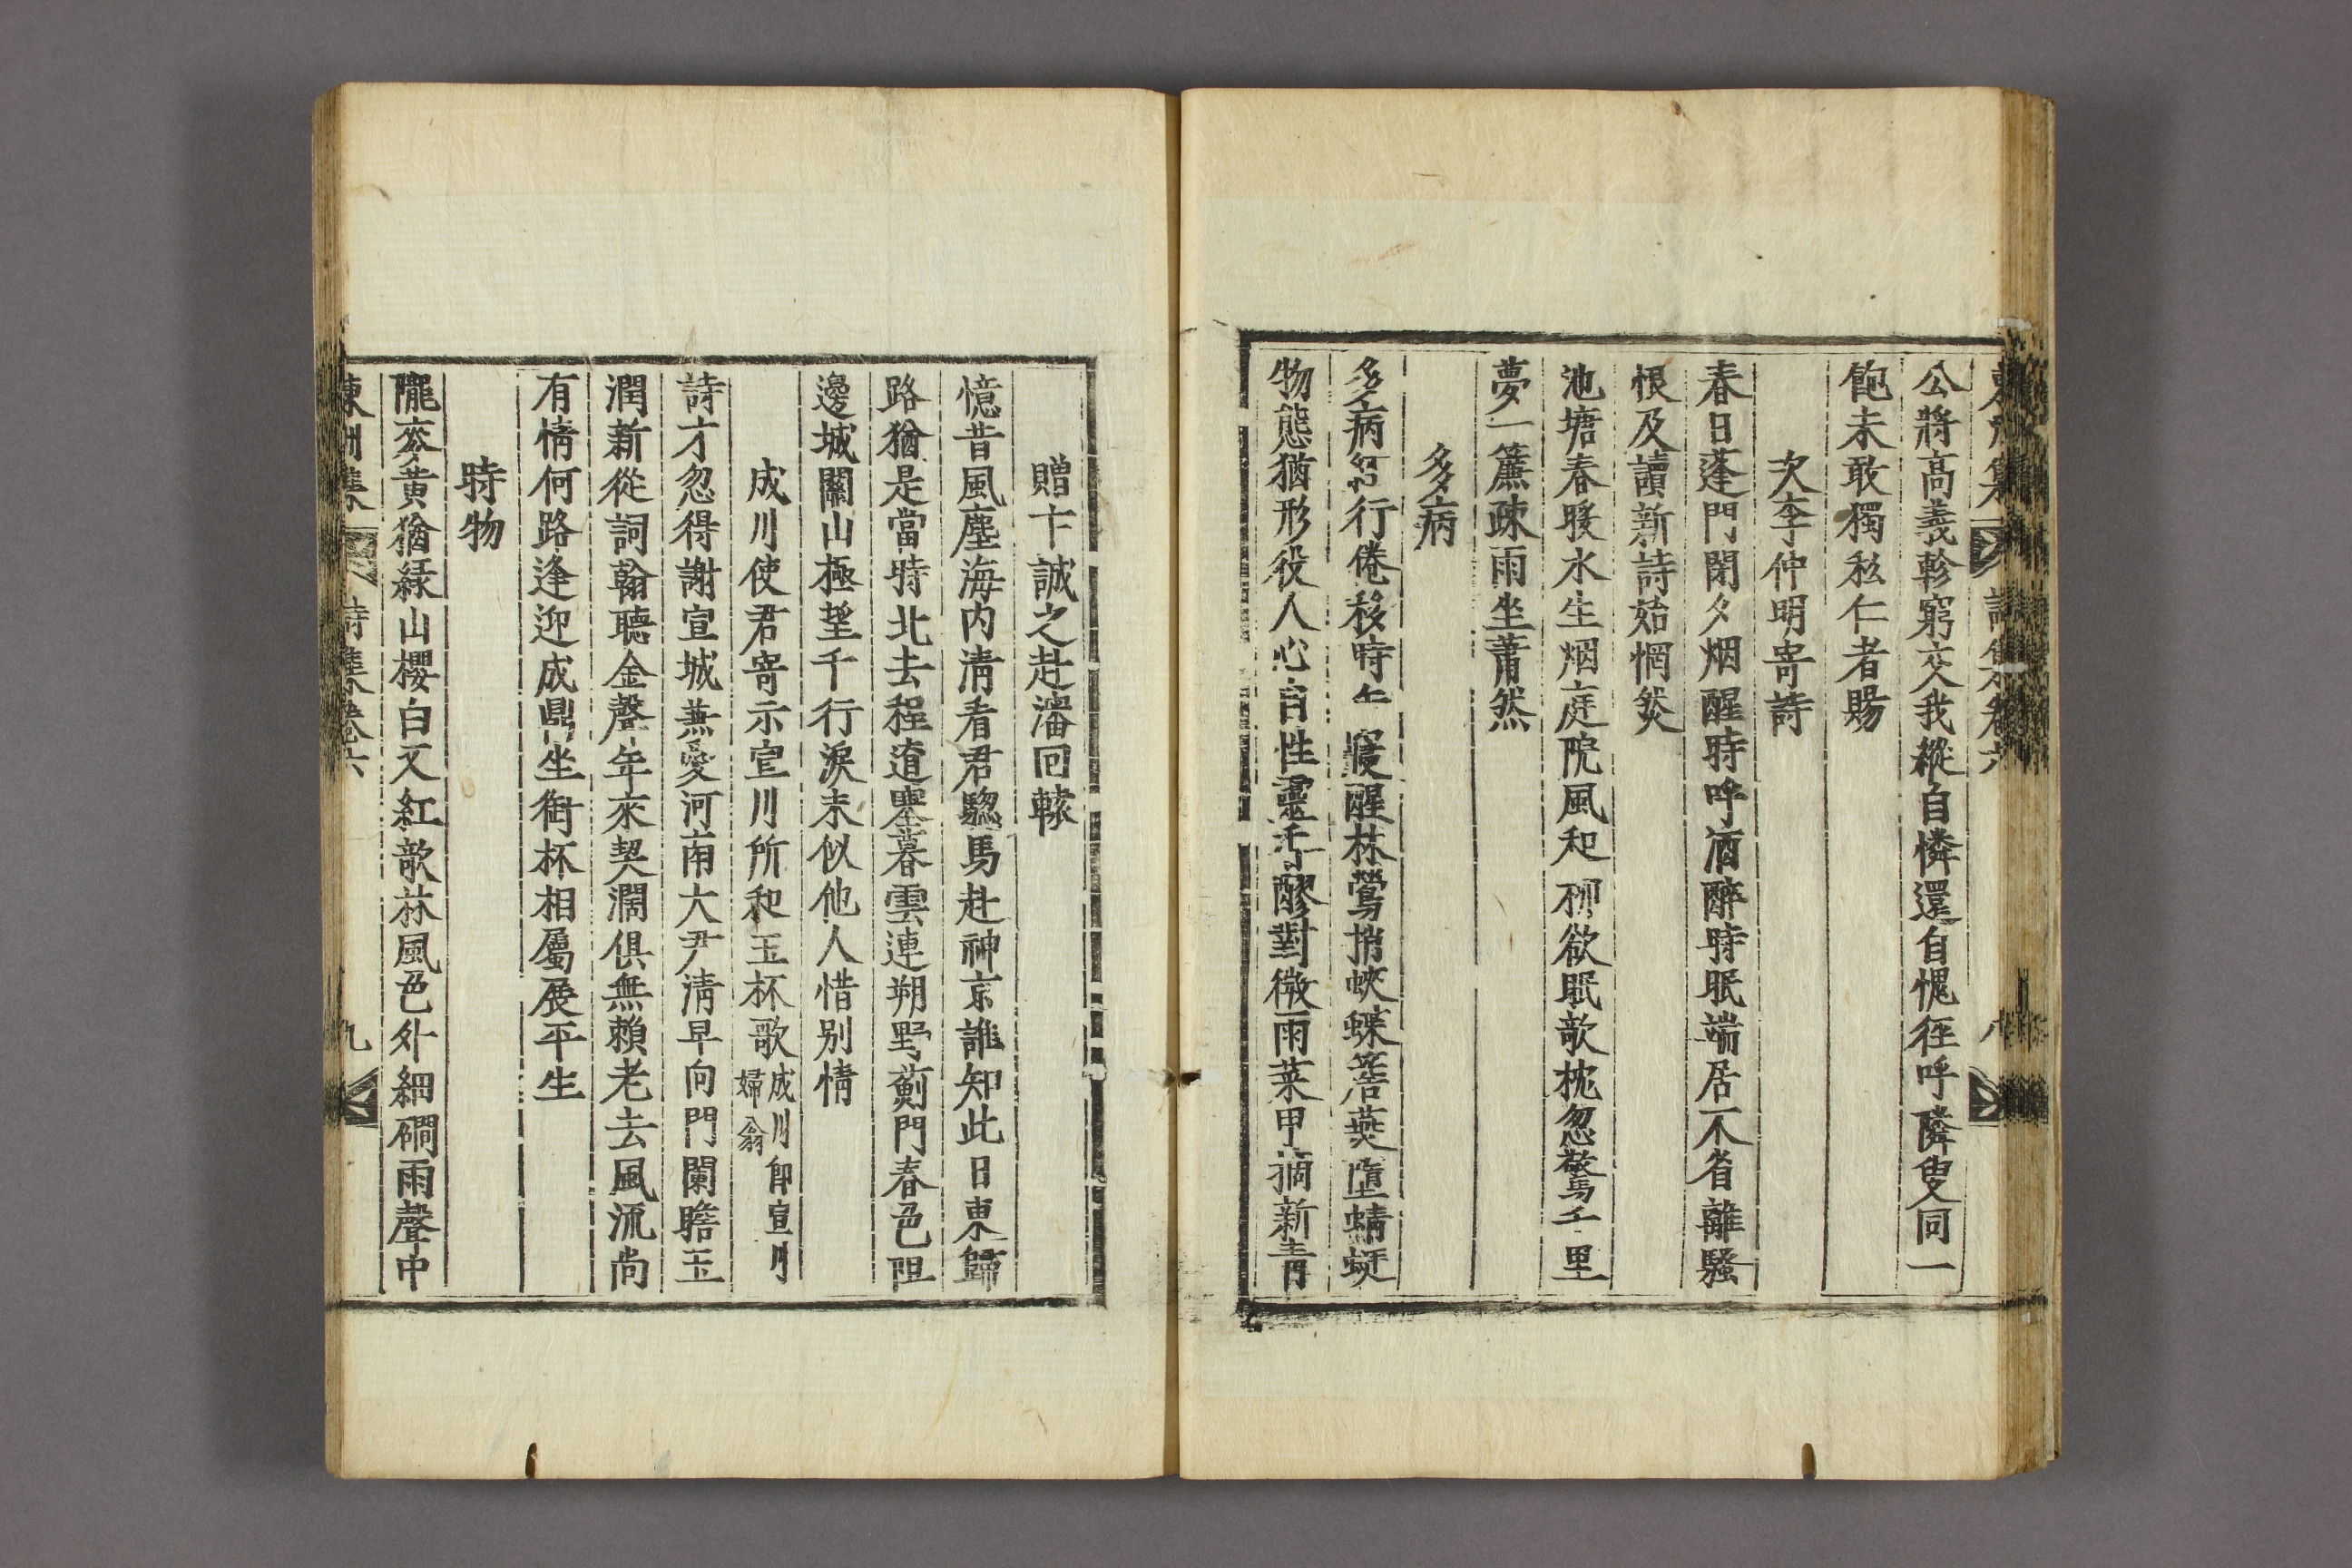 東州集 詩集卷六 八
公將高義軫窮交我縱自憐還自愧徑呼隣叟同一
飽未敢獨私仁者賜
次李仲明寄詩
春日蓬門閉夕烟醒時呼酒醉時眠端居不省離騷
恨及讀新詩始惘然
池塘春暖水生烟庭院風和柳欲眠欹枕忽驚千里
夢一簾疎雨坐蕭然
多病
多病行倦移時午寢醒林鶯捎蛺蝶簷燕墮蜻蜓
物態猶形役人心自性靈千醪對微雨菜甲摘新青
贈卞誠之赴瀋回轅
憶昔風塵海內淸看君驄馬赴神京誰知此日東歸
路猶是當時北去程遼塞暮雲連朔野薊門春色阻
邊城關山極望千行淚未似他人惜別情
成川使君寄示宣川所和玉杯歌 成川卽宣川 婦翁
詩才忽得謝宣城兼愛河南大尹淸早向門闌瞻玉
潤新從詞翰聽金聲年來契濶俱無賴老去風流尙
有情何路逢迎成鼎坐銜杯相屬展平生
時物
隴麥黃猶綠山櫻白又紅欹林風色外細磵雨聲中
東州集 詩集卷六 九